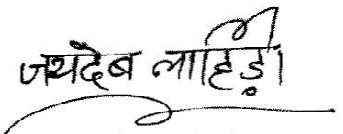 जयदेब लाहिड़ी